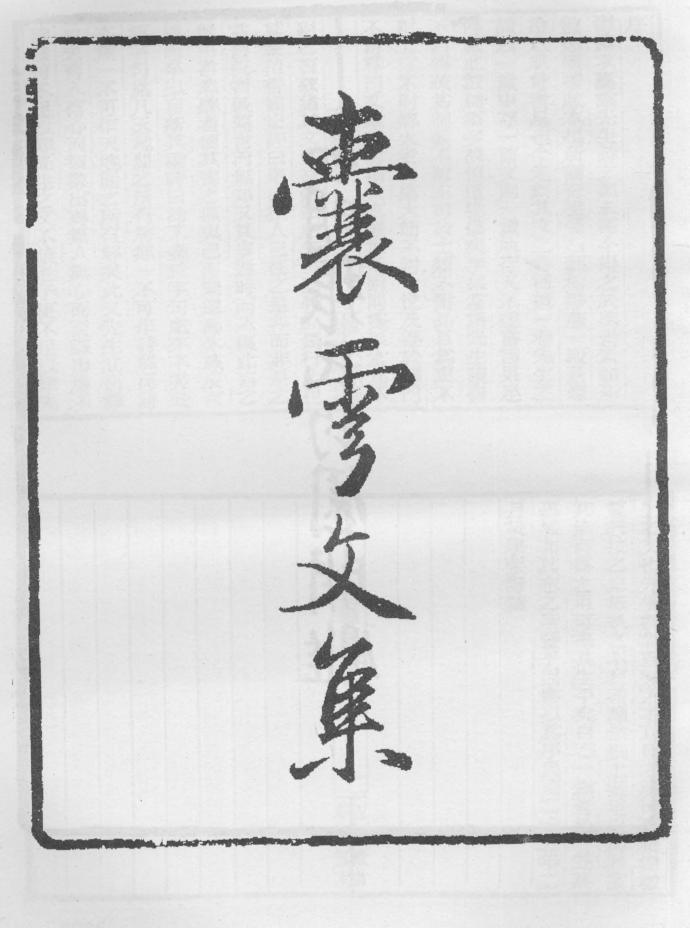 囊雲文集